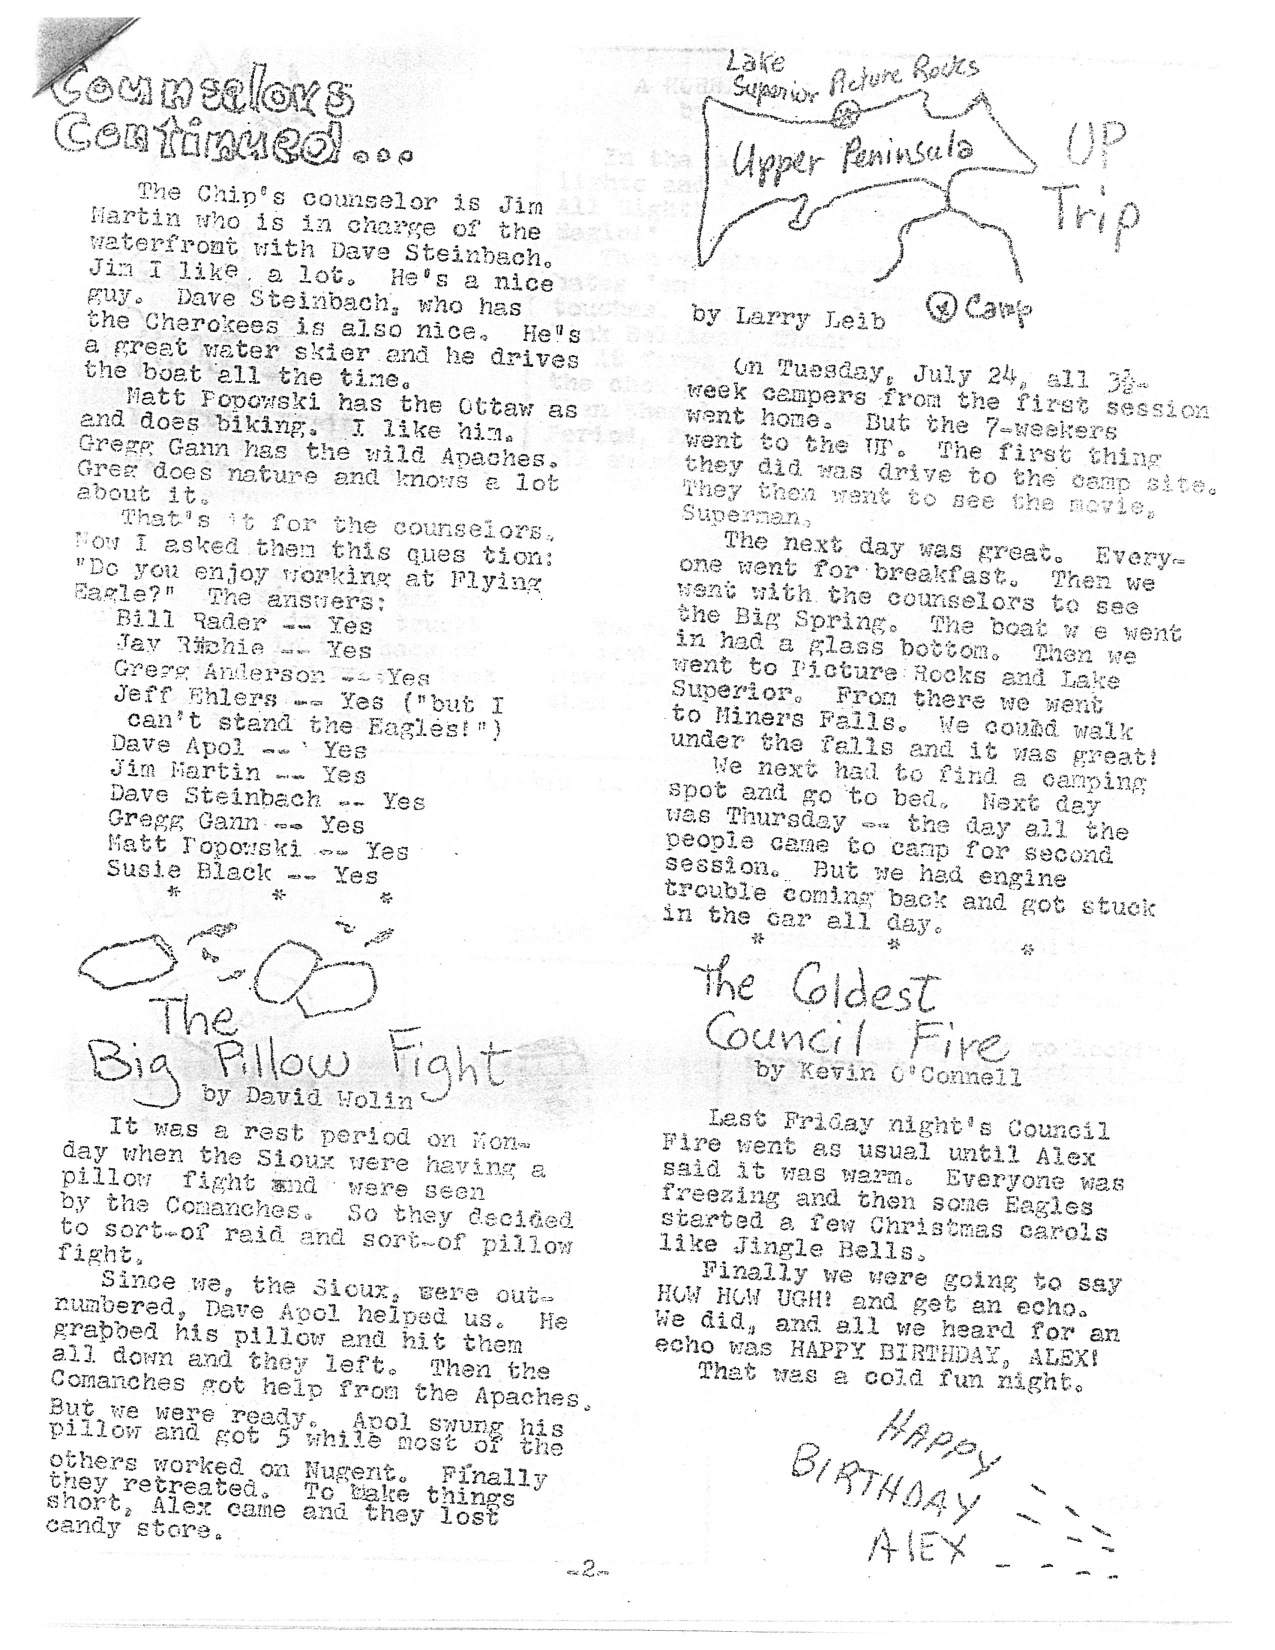 Counselors
Continued...
The Chip's counselor is Jim
Martin who is in charge of the
waterfront with Dave Steinbach.
Jim I like a lot. He's a nice
guy. Dave Steinbach, who has
the Cherokees is also nice. He's
a great water skier and he drives
the boat all the time.
Matt Popowski has the Ottaw as
and does biking. I like him.
Gregg Gann has the wild Apaches.
Greg does nature and knows a lot
about it.
That's it for the counselors.
Now I asked them this ques tion:
"Do you enjoy working at Flying
Eagle?" The answers:
Bill Rader -- Yes
Jay Ritchie -- Yes
Gregg Anderson -- Yes
Jeff Ehlers -- Yes ("but I
can't stand the Eagles!")
Dave Apol -- Yes
Jim Martin -- Yes
Dave Steinbach -- Yes
Gregg Gann -- Yes
Matt Popowski -- Yes
Susie Black -- Yes
* * *
The
Big Pillow Fight
by David Wolin
It was a rest period on Mon-
day when the Sioux were having a
pillow fight and were seen
by the Comanches. So they decided
to sort-of raid and sort-of pillow
fight.
Since we, the Sioux, were out-
numbered, Dave Apol helped us. He
grabbed his pillow and hit them
all down and they left. Then the
Comanches got help from the Apaches.
But we were ready. Apol swung his
pillow and got 5 while most of the
others worked on Nugent. Finally
they retreated. To make things
short, Alex came and they lost
candy store.
Lake
Superior Picture Rocks
Upper Peninsula
UP
Trip
Camp
by Larry Leib
On Tuesday, July 24, all 3½-
week campers from the first session
went home. But the 7-weekers
went to the UP. The first thing
they did was drive to the camp site.
They then went to see the movie,
Superman.
The next day was great. Every-
one went for breakfast. Then we
went with the counselors to see
the Big Spring. The boat w e went
in had a glass bottom. Then we
went to Picture Rocks and Lake
Superior. From there we went
to Miners Falls. We could walk
under the falls and it was great!
We next had to find a camping
spot and go to bed. Next day
was Thursday -- the day all the
people came to camp for second
session. But we had engine
trouble coming back and got stuck
in the car all day.
* * *
The Coldest
Council Fire
by Kevin O'Connell
Last Friday night's Council
Fire went as usual until Alex
said it was warm. Everyone was
freezing and then some Eagles
started a few Christmas carols
like Jingle Bells.
Finally we were going to say
HOW HOW UGH! and get an echo.
We did, and all we heard for an
echo was HAPPY BIRTHDAY, ALEX!
That was a cold fun night.
HAPPY
BIRTHDAY
ALEX
-2-